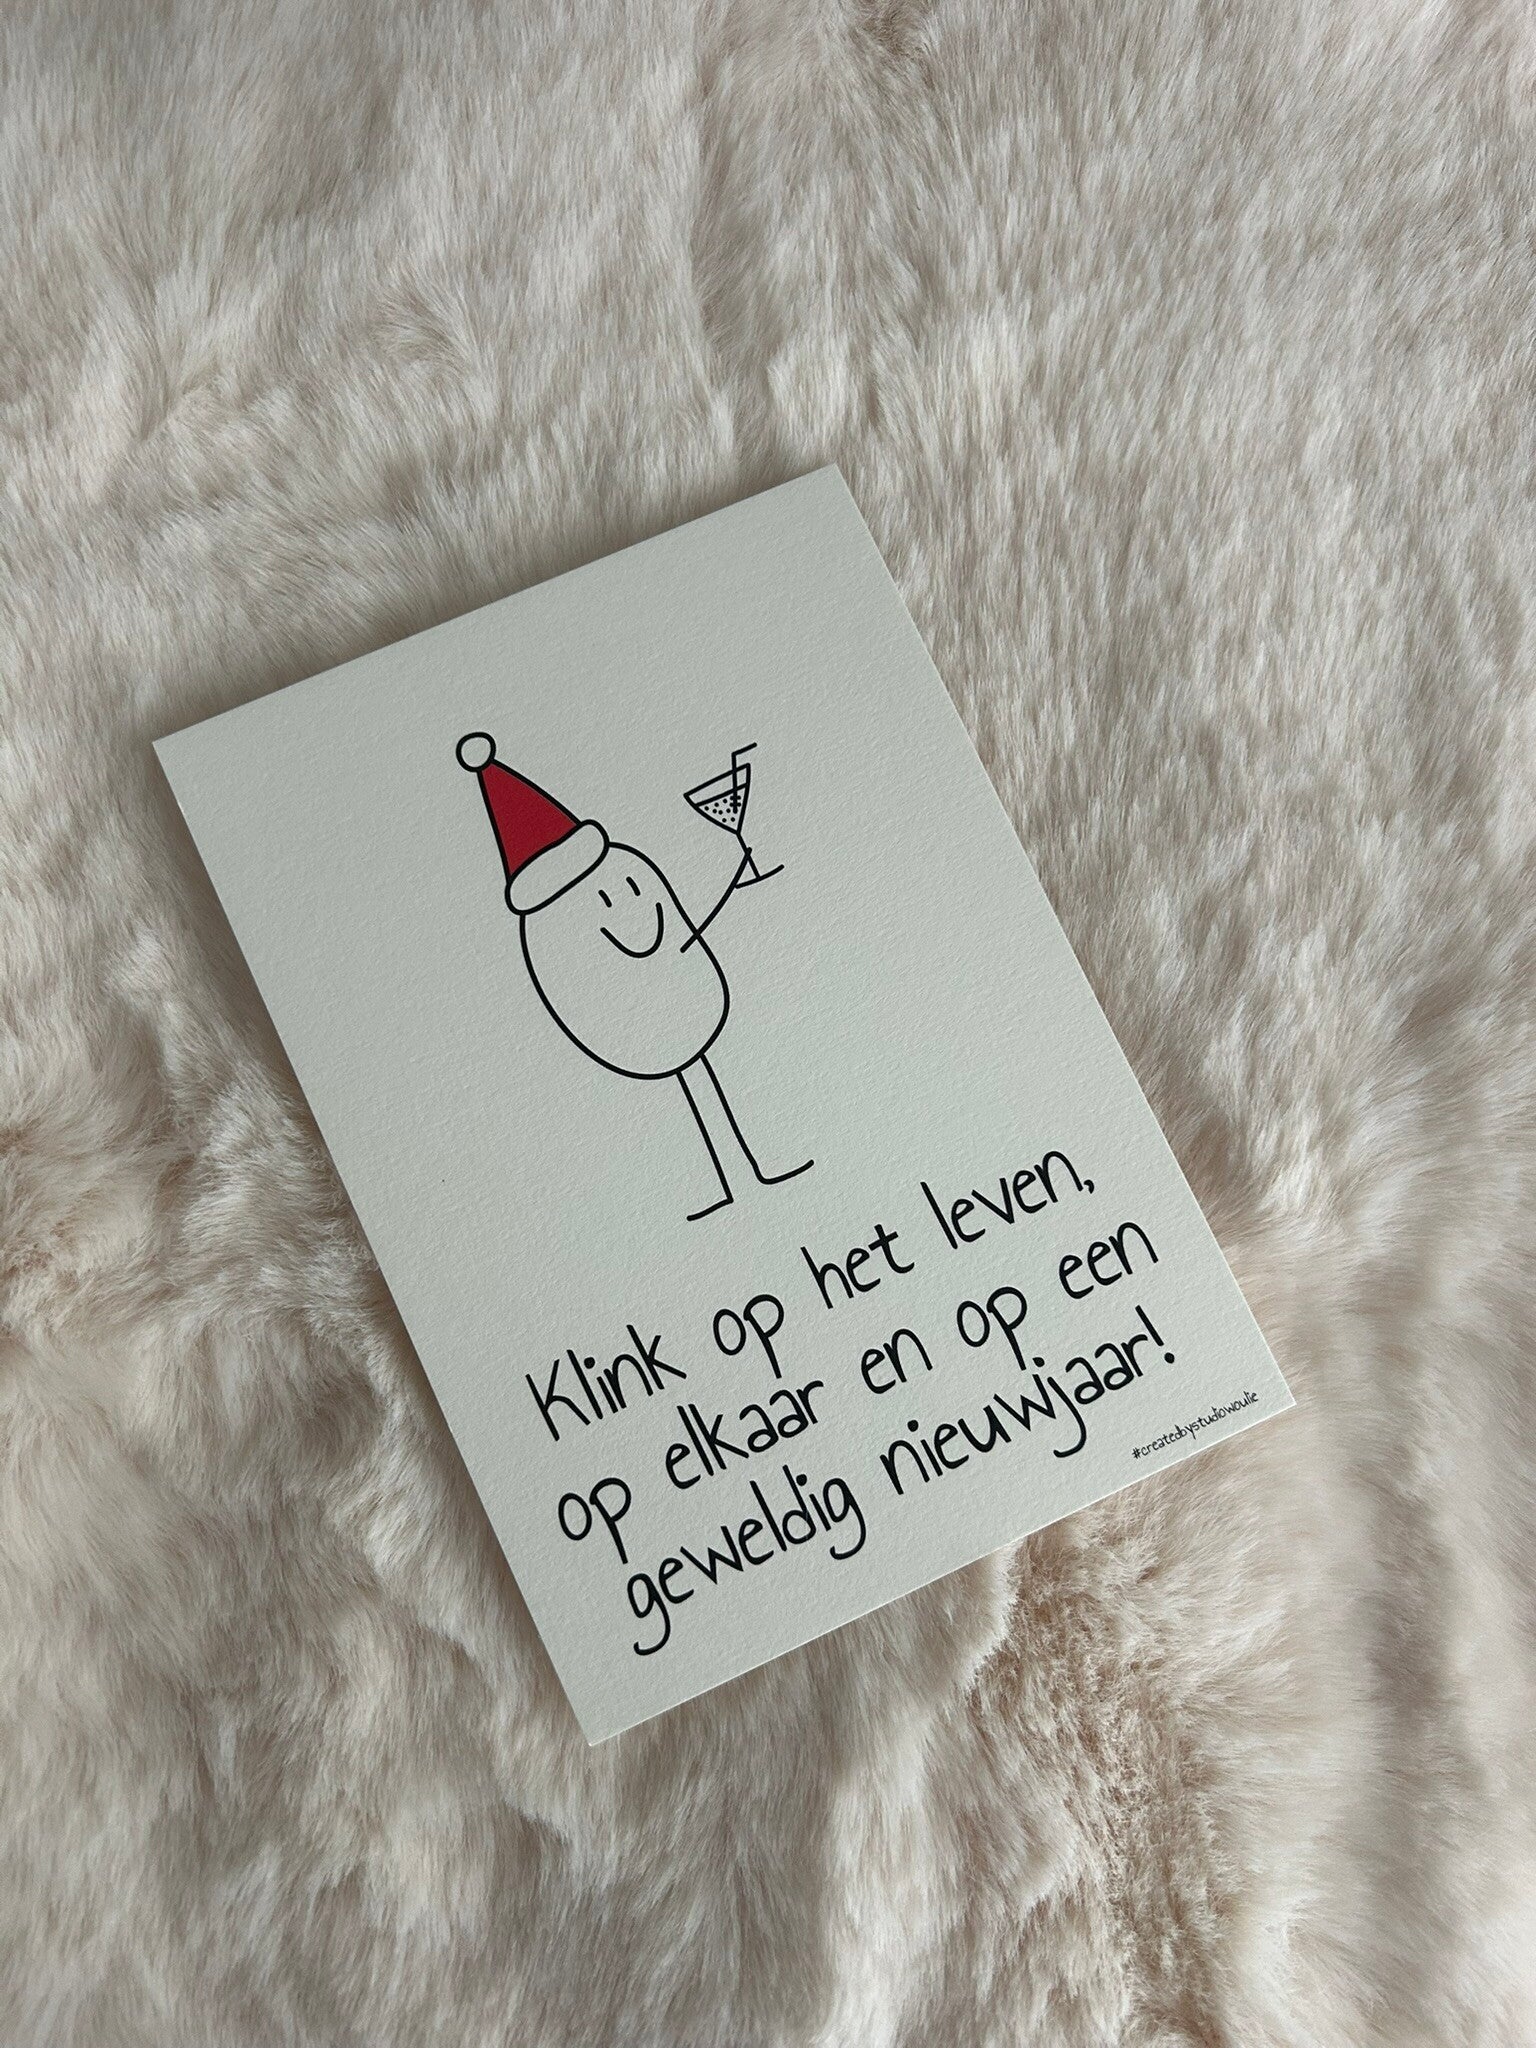 Klink op het leven,
op elkaar en op een
geweldig nieuwjaar!
#createdbystudiowoulie